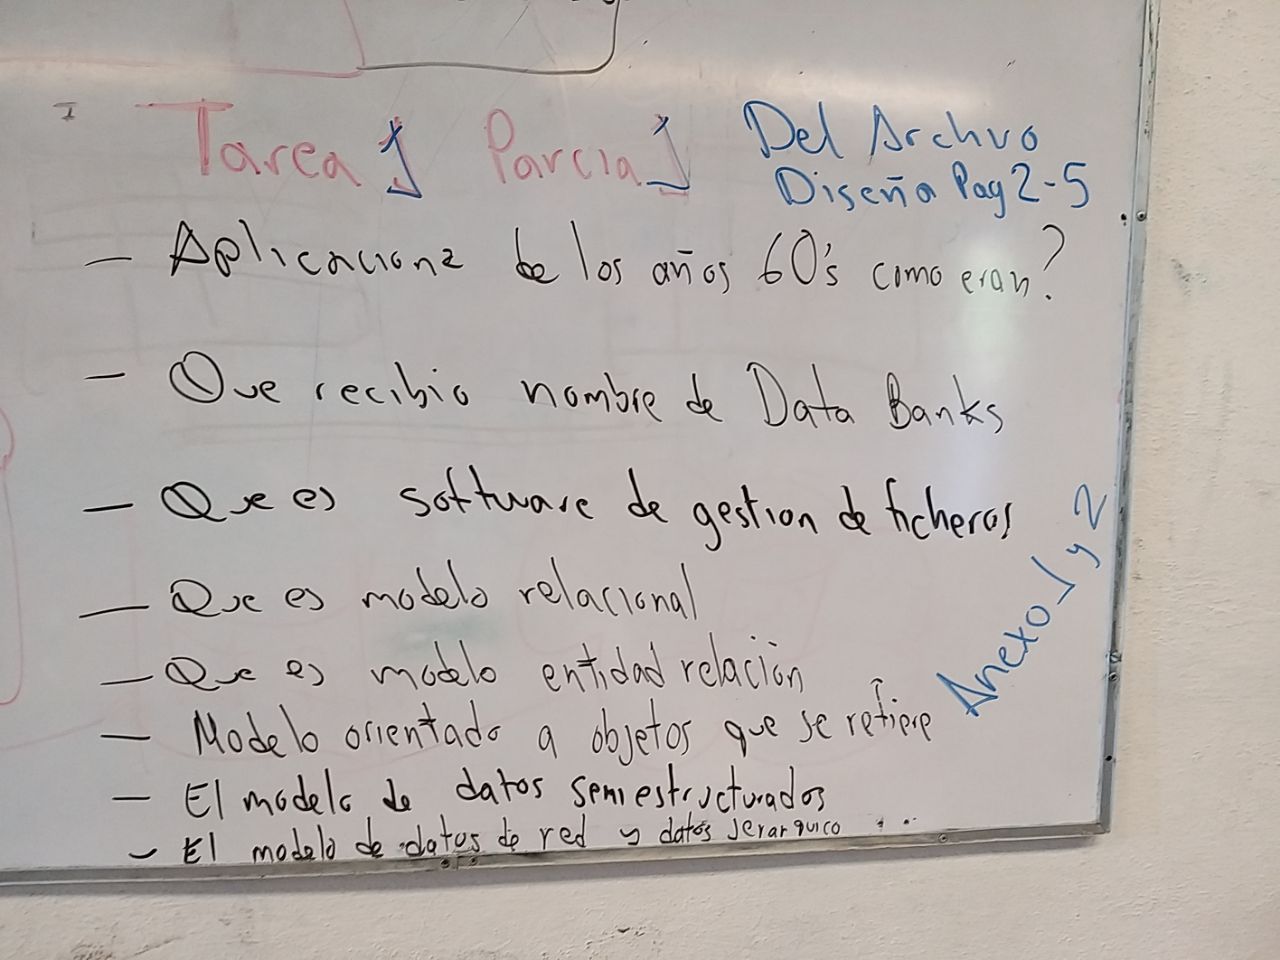 Tarea 1 Parcial 1
Del Archvo
Diseña Pag 2-5
- Aplicacione de los años 60's como eran?
- Que recibio nombre de Data Banks
- Que es software de gestion de ficheros
- Que es modelo relacional
- Que es modelo entidad relación
- Modelo orientado a objetos que se refiere
- El modelo de datos semiestructurados
- El modelo de datos de red y datos Jerarquico . ..
Anexo 1 y 2